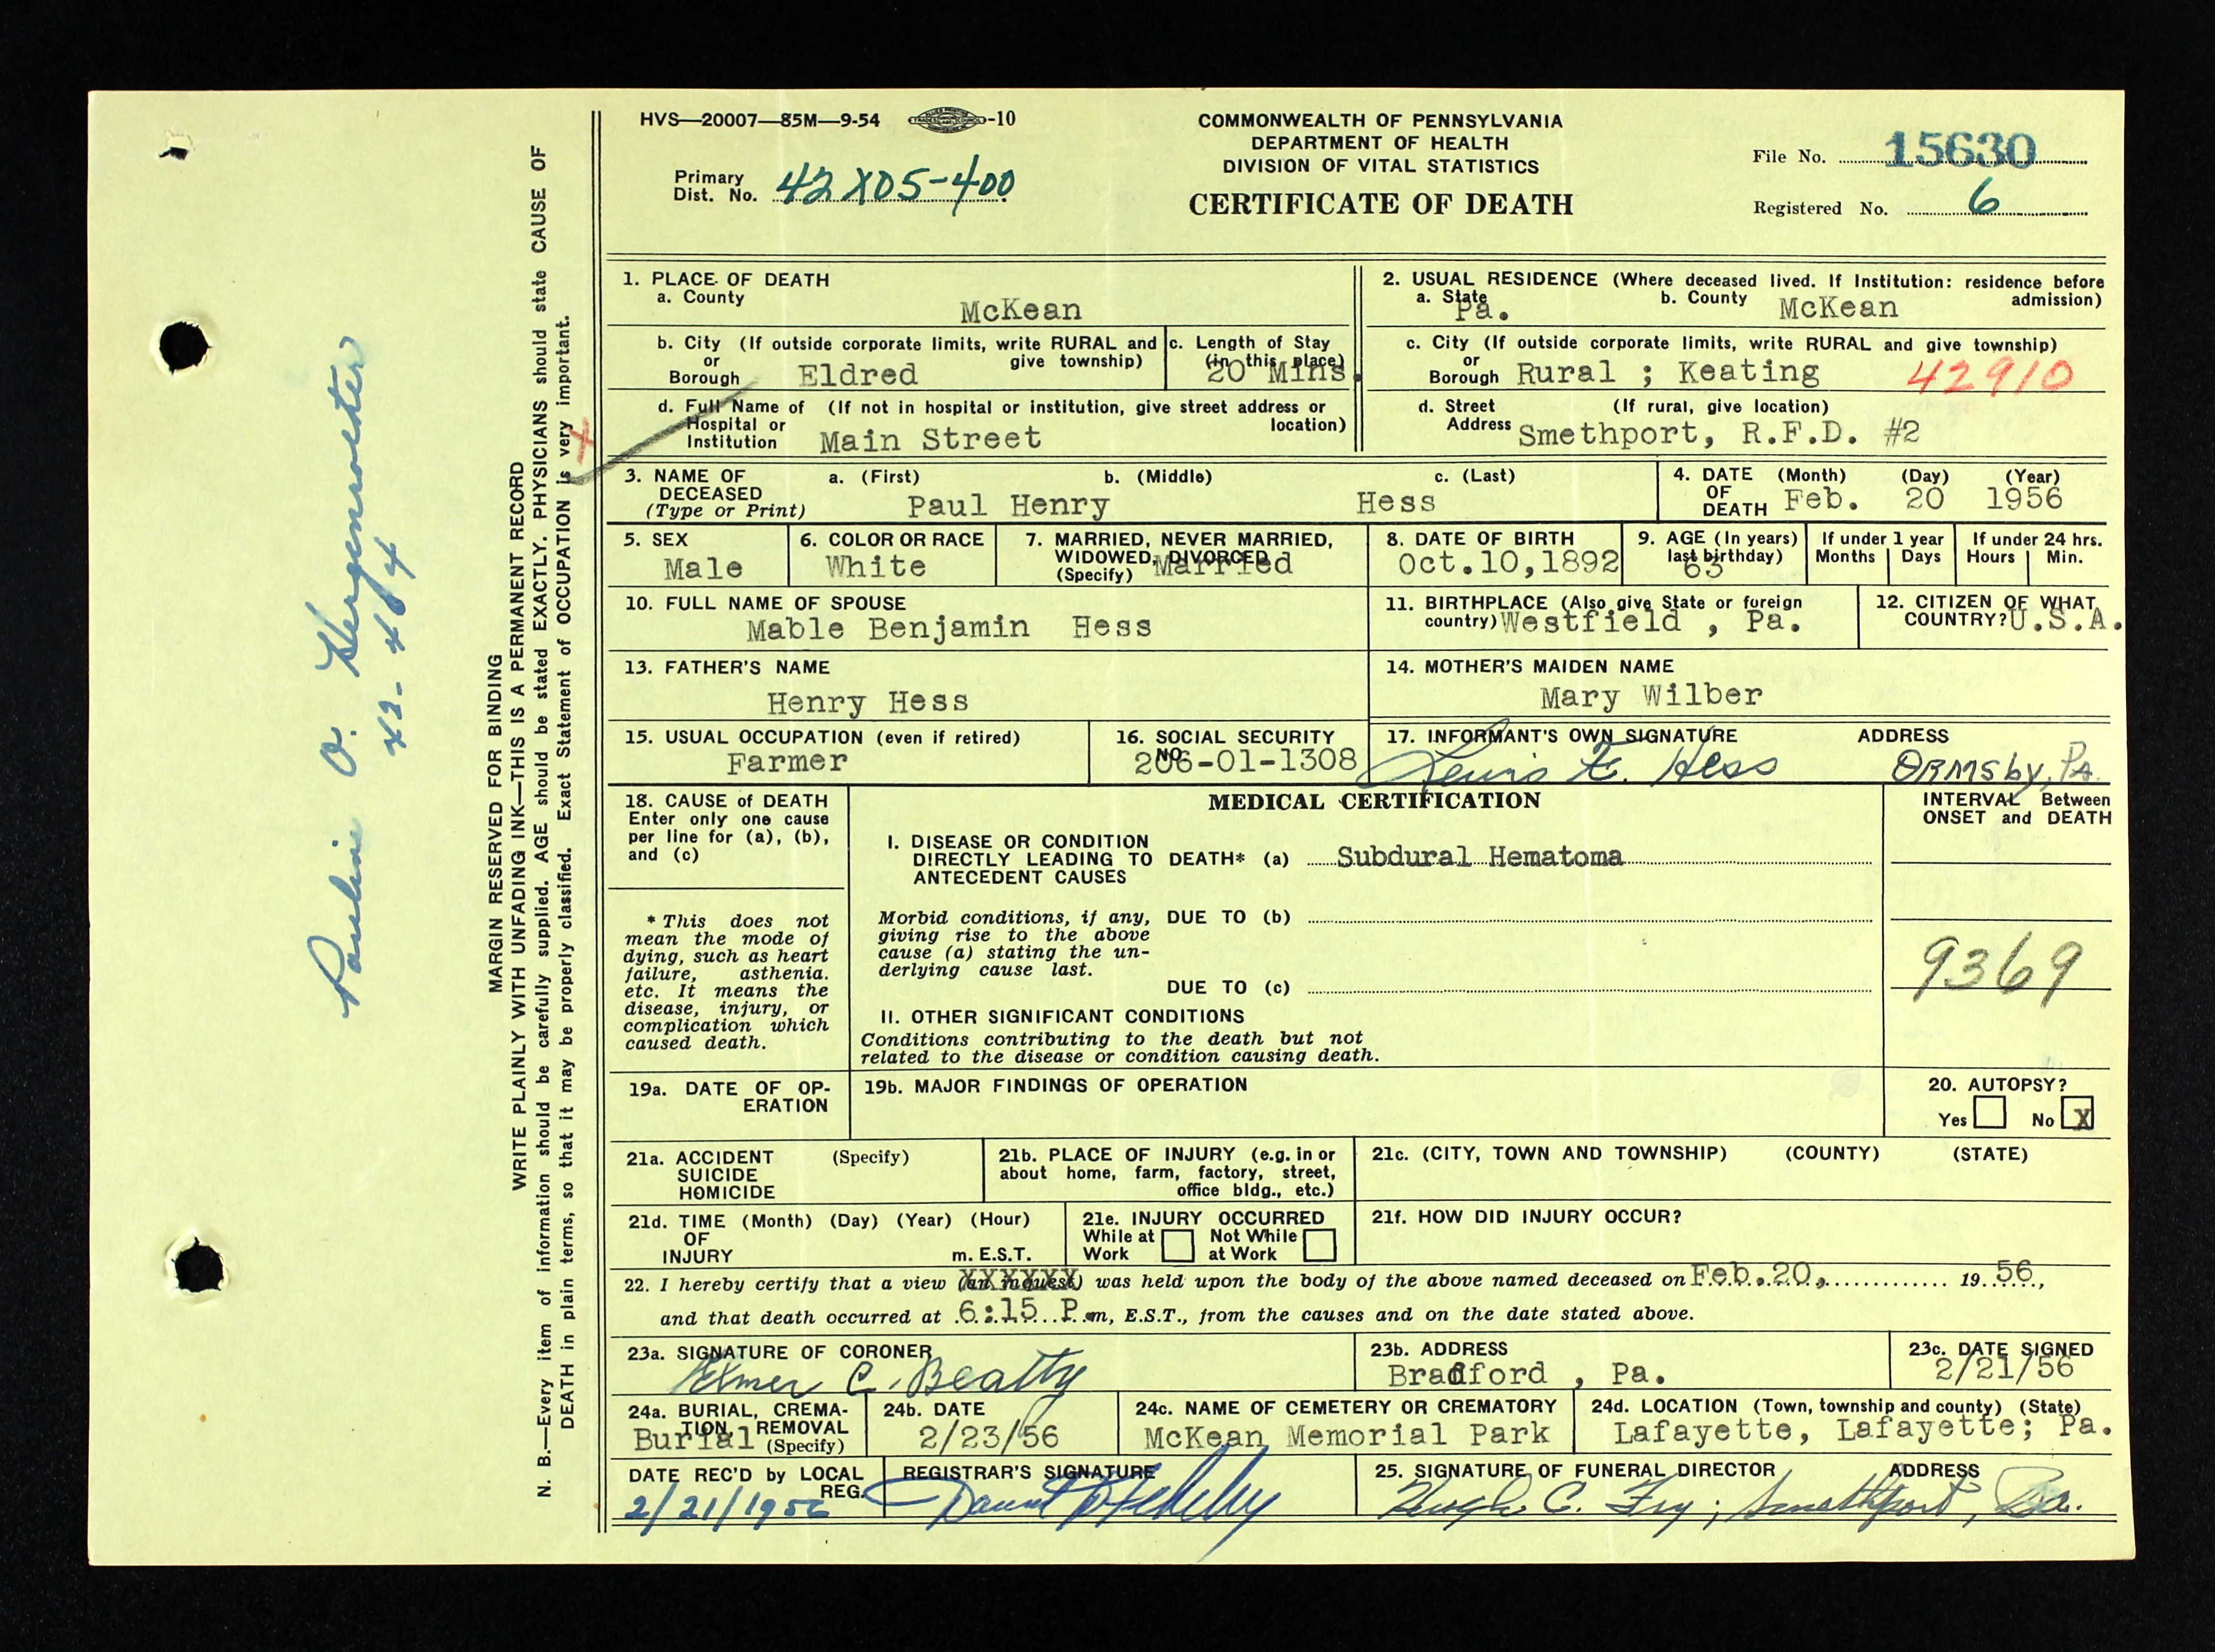 HVS—20007—85M—9-54 -10
COMMONWEALTH OF PENNSYLVANIA
DEPARTMENT OF HEALTH
DIVISION OF VITAL STATISTICS
CERTIFICATE OF DEATH
Primary
Dist. No. 42X05-400
File No. 15630
Registered No. 6
1. PLACE OF DEATH
a. County McKean
b. City (If outside corporate limits, write RURAL and
or give township)
Borough Eldred
c. Length of Stay
(in this place)
20 Mins.
d. Full Name of (If not in hospital or institution, give street address or
Hospital or location)
Institution Main Street
2. USUAL RESIDENCE (Where deceased lived. If Institution: residence before
admission)
a. State Pa. b. County McKean
c. City (If outside corporate limits, write RURAL and give township)
or
Borough Rural ; Keating 42910
d. Street (If rural, give location)
Address Smethport, R.F.D. #2
3. NAME OF a. (First) b. (Middle) c. (Last)
DECEASED
(Type or Print) Paul Henry Hess
4. DATE (Month) (Day) (Year)
OF
DEATH Feb. 20 1956
5. SEX
Male
6. COLOR OR RACE
White
7. MARRIED, NEVER MARRIED,
WIDOWED, DIVORCED
(Specify) Married
8. DATE OF BIRTH
Oct.10,1892
9. AGE (In years)
last birthday)
63
If under 1 year
Months Days
If under 24 hrs.
Hours Min.
10. FULL NAME OF SPOUSE
Mable Benjamin Hess
11. BIRTHPLACE (Also give State or foreign
country) Westfield , Pa.
12. CITIZEN OF WHAT
COUNTRY? U.S.A.
13. FATHER'S NAME
Henry Hess
14. MOTHER'S MAIDEN NAME
Mary Wilber
15. USUAL OCCUPATION (even if retired)
Farmer
16. SOCIAL SECURITY
NO.
206-01-1308
17. INFORMANT'S OWN SIGNATURE ADDRESS
Lewis E. Hess Ormsby, Pa.
18. CAUSE of DEATH
Enter only one cause
per line for (a), (b),
and (c)
* This does not
mean the mode of
dying, such as heart
failure, asthenia.
etc. It means the
disease, injury, or
complication which
caused death.
MEDICAL CERTIFICATION
INTERVAL Between
ONSET and DEATH
I. DISEASE OR CONDITION
DIRECTLY LEADING TO DEATH* (a) Subdural Hematoma
ANTECEDENT CAUSES
Morbid conditions, if any, DUE TO (b)
giving rise to the above
cause (a) stating the un-
derlying cause last.
DUE TO (c)
9369
II. OTHER SIGNIFICANT CONDITIONS
Conditions contributing to the death but not
related to the disease or condition causing death.
19a. DATE OF OP-
ERATION
19b. MAJOR FINDINGS OF OPERATION
20. AUTOPSY?
Yes No X
21a. ACCIDENT (Specify)
SUICIDE
HOMICIDE
21b. PLACE OF INJURY (e.g. in or
about home, farm, factory, street,
office bldg., etc.)
21c. (CITY, TOWN AND TOWNSHIP) (COUNTY) (STATE)
21d. TIME (Month) (Day) (Year) (Hour)
OF
INJURY m. E.S.T.
21e. INJURY OCCURRED
While at Not While
Work at Work
21f. HOW DID INJURY OCCUR?
22. I hereby certify that a view (an inquest) was held upon the body of the above named deceased on Feb.20, 19 56,
and that death occurred at 6:15 P.m, E.S.T., from the causes and on the date stated above.
23a. SIGNATURE OF CORONER
Elmer C. Beatty
23b. ADDRESS
Bradford , Pa.
23c. DATE SIGNED
2/21/56
24a. BURIAL, CREMA-
TION, REMOVAL
Burial (Specify)
24b. DATE
2/23/56
24c. NAME OF CEMETERY OR CREMATORY
McKean Memorial Park
24d. LOCATION (Town, township and county) (State)
Lafayette, Lafayette; Pa.
DATE REC'D by LOCAL
REG.
2/21/1956
REGISTRAR'S SIGNATURE
25. SIGNATURE OF FUNERAL DIRECTOR ADDRESS
Hugh C. Fry ; Smethport, Pa.
MARGIN RESERVED FOR BINDING
WRITE PLAINLY WITH UNFADING INK—THIS IS A PERMANENT RECORD
N. B.—Every item of information should be carefully supplied. AGE should be stated EXACTLY. PHYSICIANS should state CAUSE OF
DEATH in plain terms, so that it may be properly classified. Exact Statement of OCCUPATION is very important.
Pauline O.